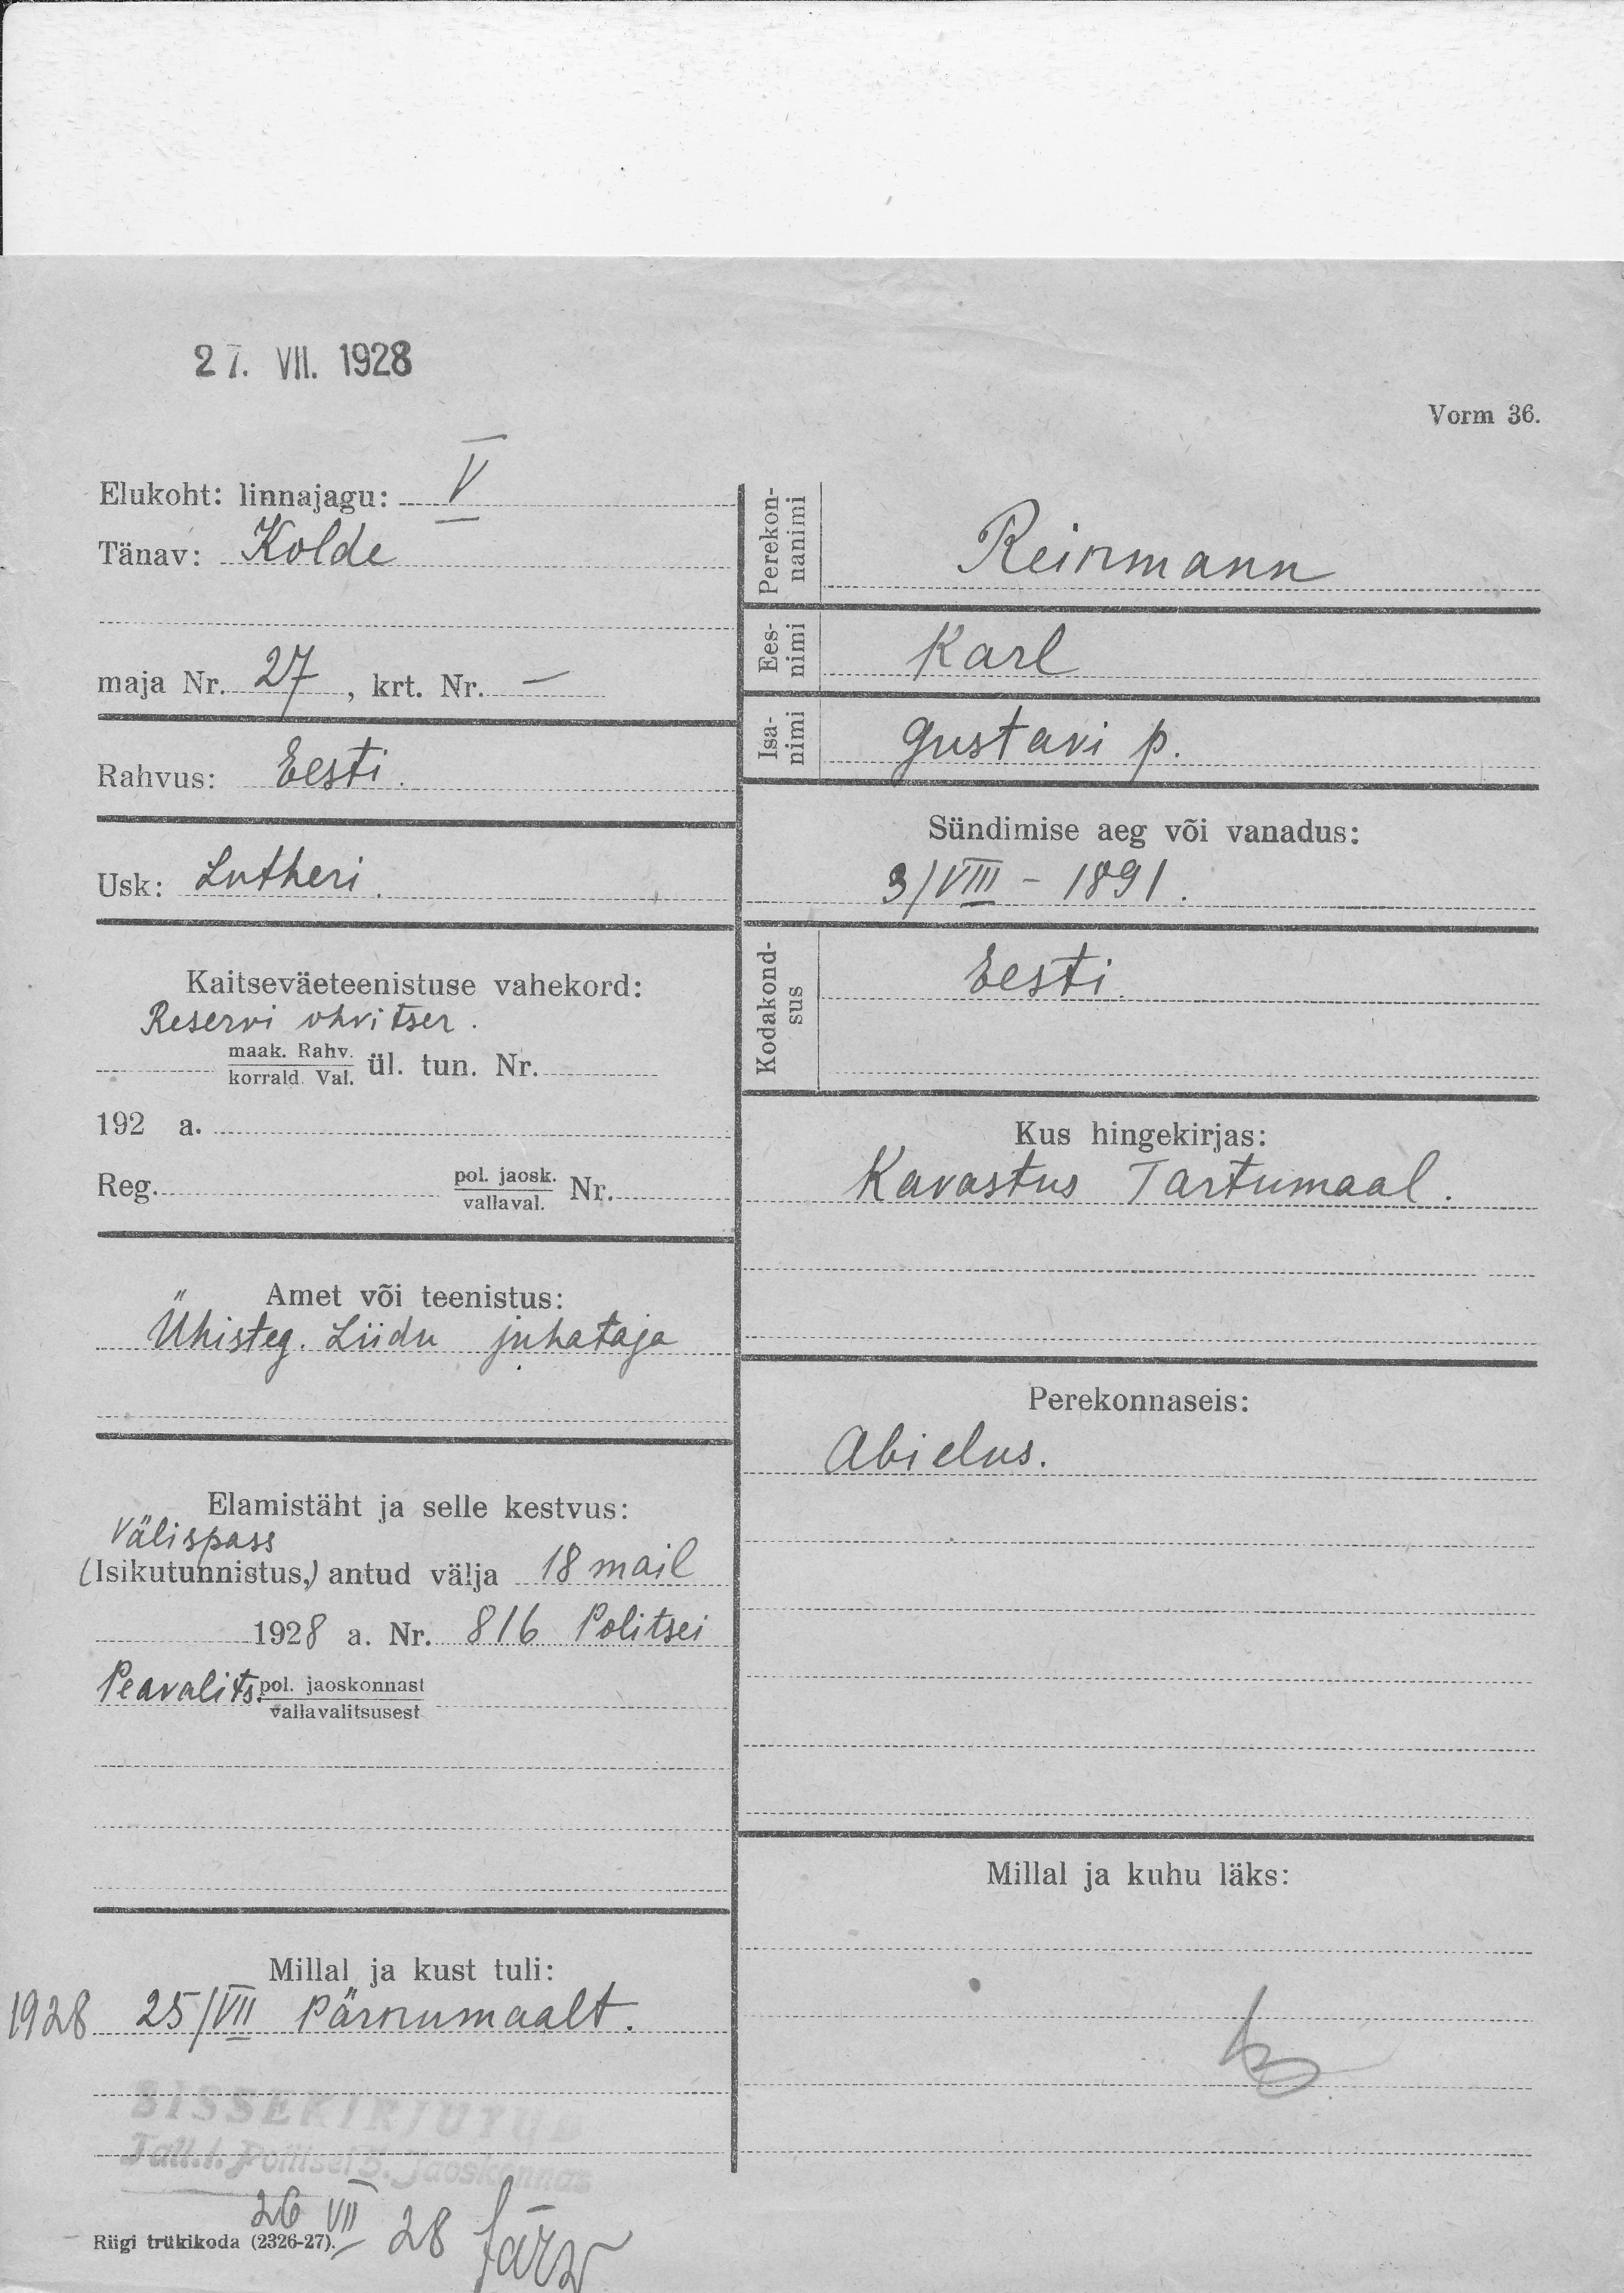 27. VII. 1928
Vorm 36.
Elukoht: linnajagu: V
Tänav: Kolde
maja Nr. 27, krt. Nr. —
Rahvus: Eesti.
Usk: Lutheri.
Kaitseväeteenistuse vahekord:
Reservi ohvitser.
maak. Rahv.
korrald. Val. ül. tun. Nr.
192 a.
Reg. pol. jaosk. Nr.
vallaval.
Amet või teenistus:
Ühisteg. Liidu juhataja
Elamistäht ja selle kestvus:
Välispass
(Isikutunnistus,) antud välja 18 mail
1928 a. Nr. 816 Politsei
Peavalits. pol. jaoskonnast
vallavalitsusest
Millal ja kust tuli:
1928 25/VII Pärnumaalt.
SISSEKIRJUTUD
Tall. l. Politsei 5. Jaoskonnas
26 VII 28 Järv
Riigi trükikoda (2326-27).
Perekonnanimi
Reinmann
Ees-
nimi
Karl
Isa-
nimi
Gustavi p.
Sündimise aeg või vanadus:
3/VIII – 1891.
Kodakond-
sus
Eesti.
Kus hingekirjas:
Kavastus Tartumaal.
Perekonnaseis:
Abielus.
Millal ja kuhu läks: